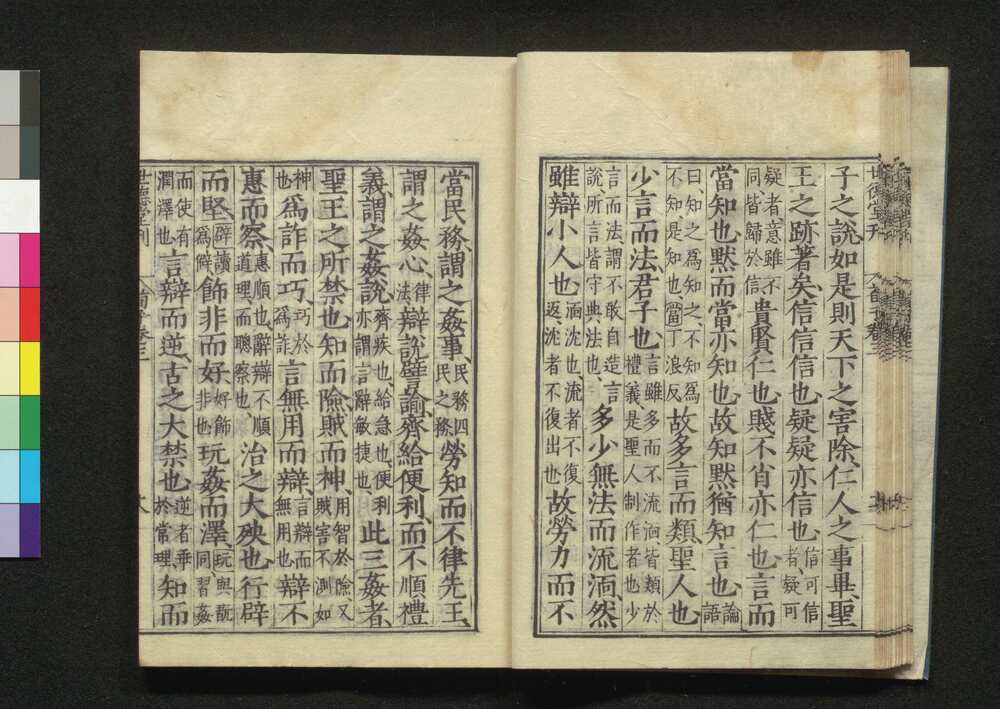 子之說如是則天下之害除、仁人之事畢、聖
王之跡著矣、信信信也、疑疑亦信也、信可信者、疑可
疑者、意雖不同、皆歸於信、貴賢仁也、賤不肖亦仁也、言而
當知也、默而當亦知也、故知默猶知言也、論語
曰、知之為知之、不知為不知、是知也、當丁浪反、故多言而類、聖人也、
少言而法、君子也、言雖多而不流湎皆類於禮義、是聖人制作者也、少
言而法、謂不敢自造言說、所言皆守典法也、多少無法而流湎、然
雖辯小人也、湎沈也、流者不復返、沈者不復出也、故勞力而不
當民務、謂之姦事、民務四民之務、勞知而不律先王、
謂之姦心、律法、辯說譬諭齊給便利、而不順禮
義、謂之姦說、齊疾也、給急也、便利亦謂言辭敏捷也、此三姦者、
聖王之所禁也、知而險、賊而神、用智於險、又賊害不測如
神也、為詐而巧、巧於為詐、言無用而辯、言辯而無用也、辯不
惠而察、惠順也、辭辯不順道理、而聰察也、治之大殃也、行辟
而堅、辟讀為僻、飾非而好、好飾非也、玩姦而澤、玩與翫同、習姦
而使有潤澤也、言辯而逆、古之大禁也、逆者乖於常理、知而
世德堂刊